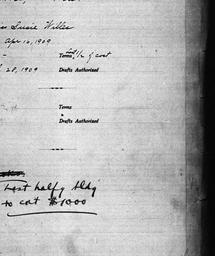 Susie Willis
Apr 16, 1909
Terms, 1/2 of cost
28, 1909 Drafts Authorized
Terms
Drafts Authorized
West half of bldg
to cost $1000